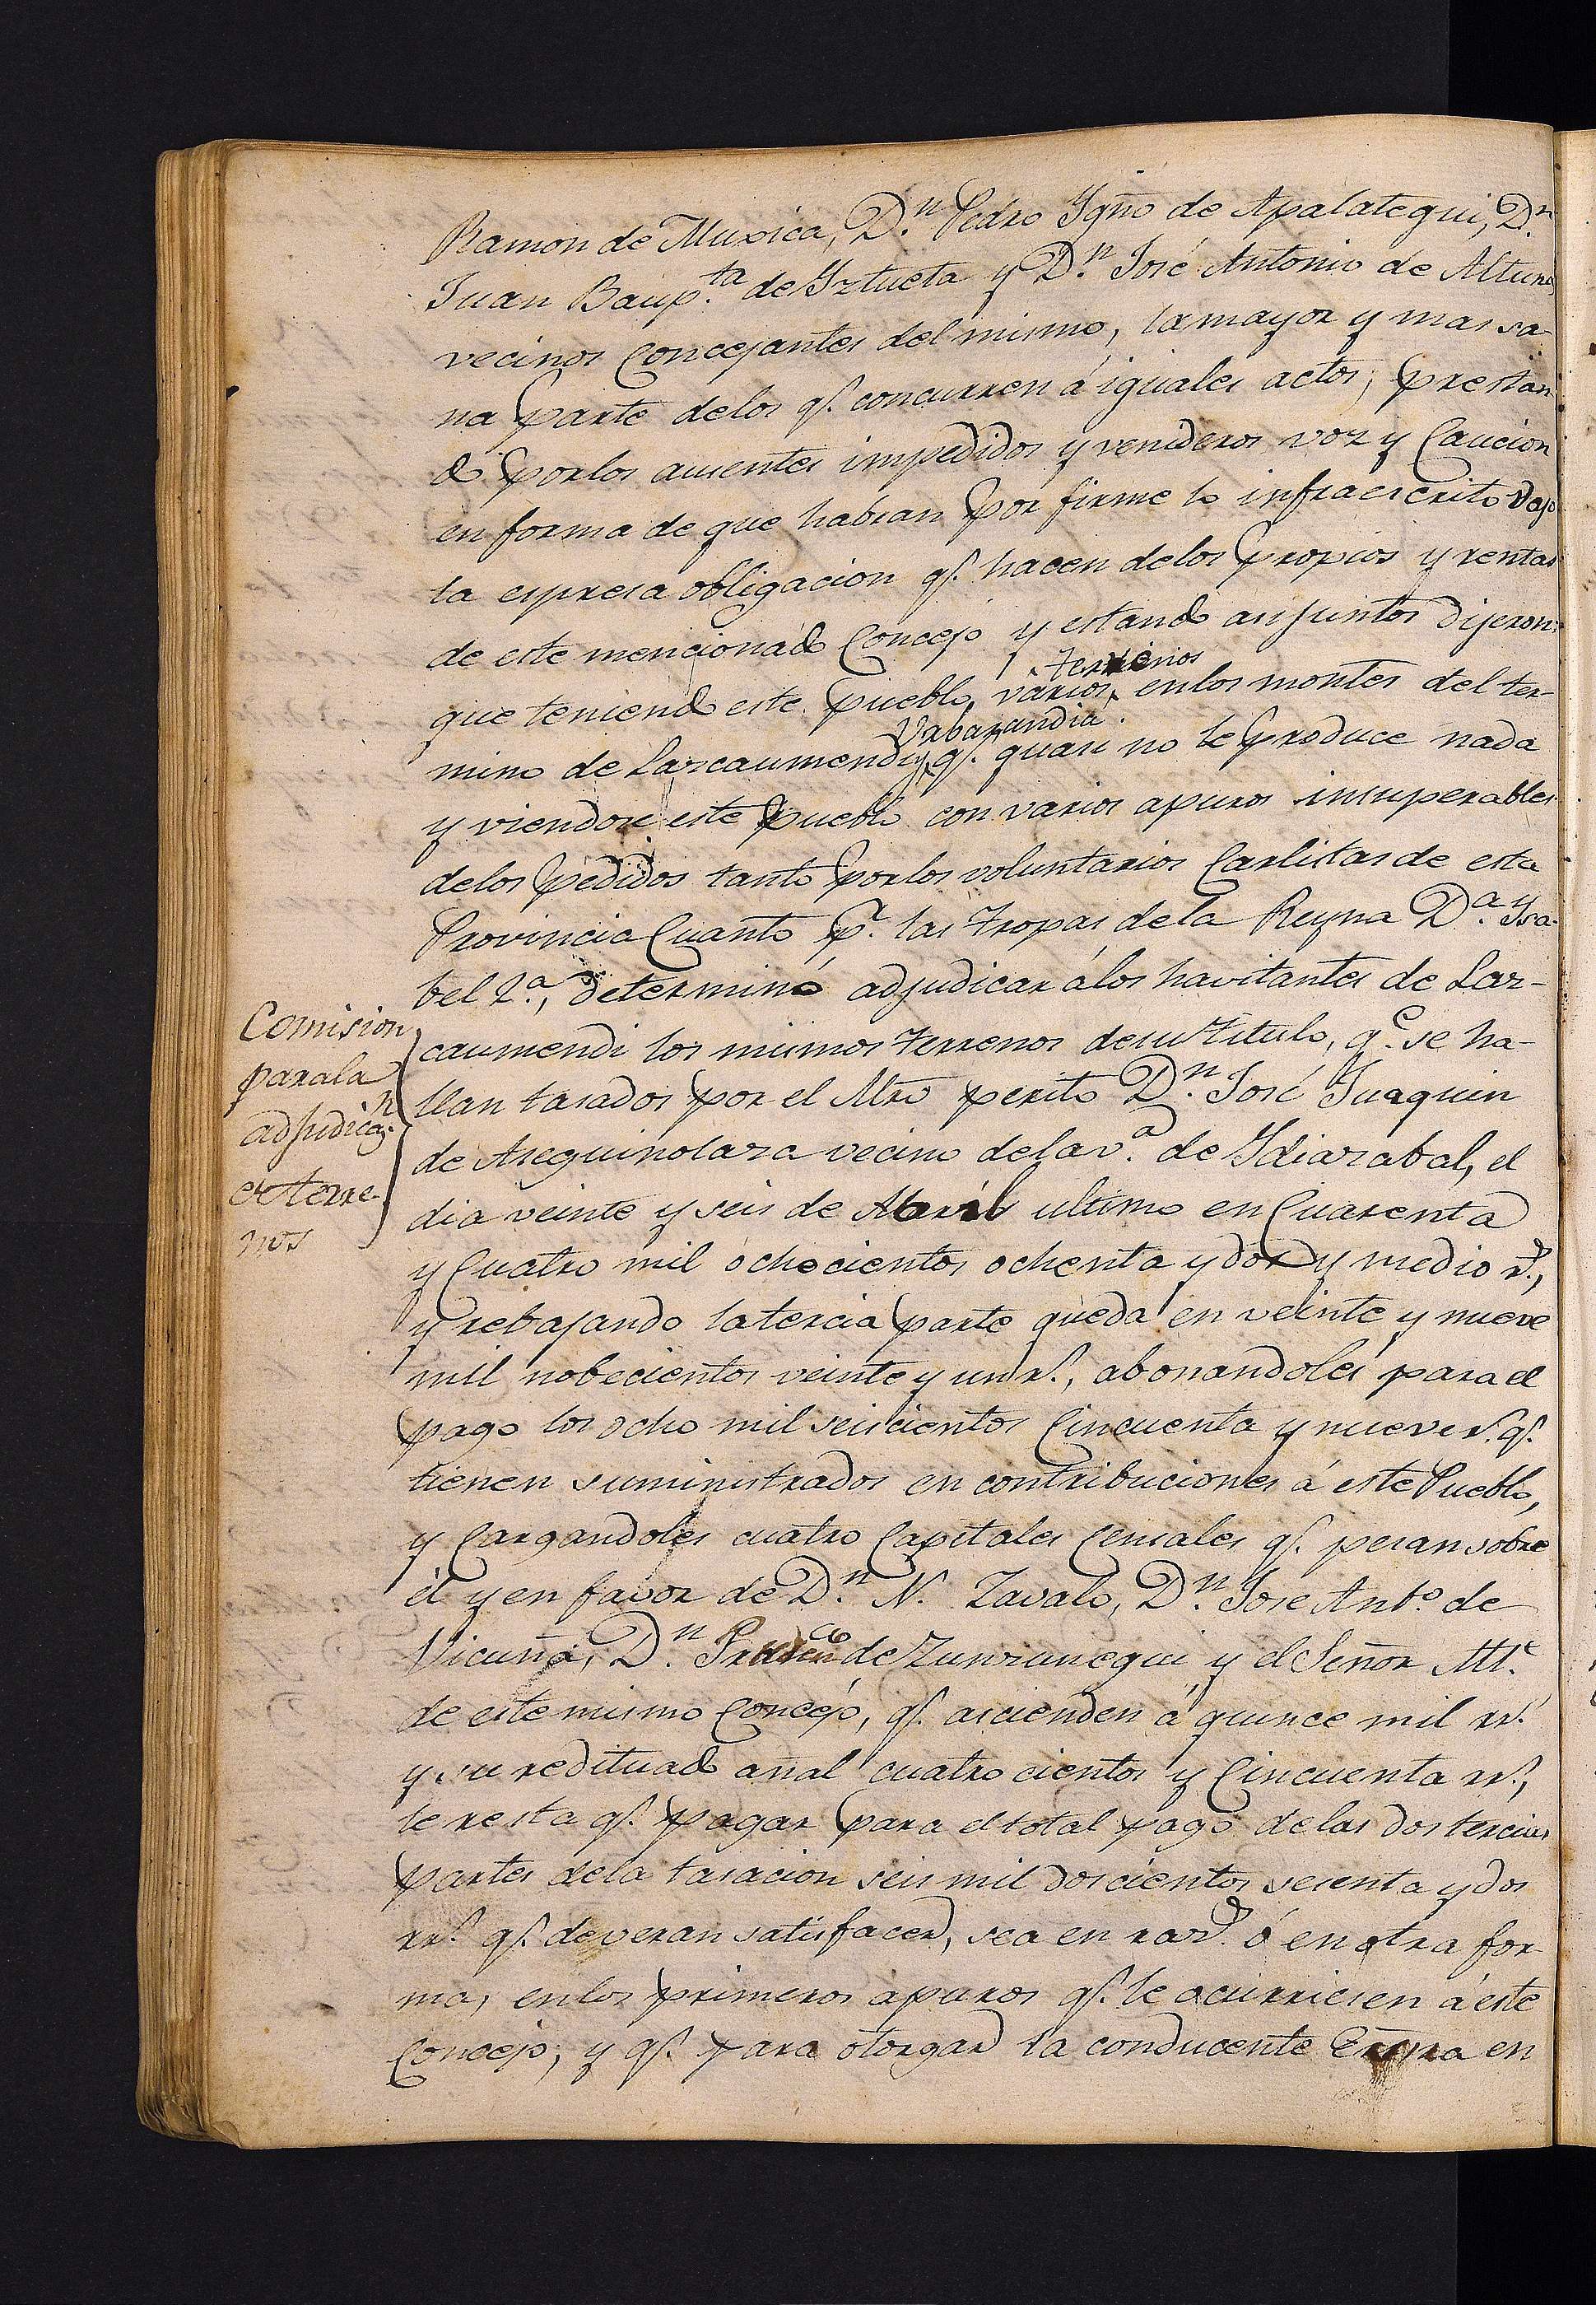 Ramon de Muxica, D.ⁿ Pedro Ygño de Apalategui, D.ⁿ
Juan Baup.ᵗᵃ de Yztueta y D.ⁿ José Antonio de Altuna
vecinos Concejantes del mismo, la mayor y mas sa-
na parte delos q.ᵉ concurren á iguales actos, prestan-
do porlos ausentes impedidos y venideros voz y Caucion
en forma de que habran por firme lo infraescrito vajo
la espresa obligacion q.ᵉ hacen delos propios y rentas
de este mencionado Concejo y estando asi juntos dijeron:
terrenos
que teniendo este pueblo varios enlos montes del ter-
y Urbarandia
mino de Lazcaumendi q.ᵉ quasi no le produce nada
y viendose este pueblo con varios apuros insuperables
delos pedidos tanto porlos voluntarios Carlistas de esta
Provincia Cuanto p.ʳ las tropas dela Reyna D.ᵃ Ysa-
bel 2.ᵃ, determinó adjudicar álos havitantes de Laz-
Comision
parala
adjudicaz.ⁿ
de terre-
nos
caumendi los mismos terrenos de su titulo, q.ᵉ se ha-
llan tasados por el Mtro perito D.ⁿ José Juaquin
de Aseguinolaza vecino dela v.ᵃ de Ydiazabal, el
dia veinte y seis de Abril ultimo en Cuarenta
y Cuatro mil ochocientos ochenta y dos y medio r.ˢ,
y rebajando la tercia parte queda en veinte y nueve
mil nobecientos veinte y un r.ˢ, abonandoles para el
pago los ocho mil seiscientos Cincuenta y nueve r.ˢ q.ᵉ
tienen suministrados en contribuciones á este Pueblo,
y Cargandoles cuatro Capitales Censales q.ᵉ pesan sobre
él y en favor de D.ⁿ N. Zavalo, D.ⁿ Jose Ant.º de
Vicuña, D.ⁿ de Zunzunegui y el Señor Alt.ᵉ
de este mismo Concejo, q.ᵉ ascienden á quince mil rr.ˢ
y su redituado añal cuatro cientos y Cincuenta rr.ˢ,
le resta q.ᵉ pagar para el total pago delas dos tercias
partes dela tasacion seis mil doscientos sesenta y dos
rr.ˢ q.ᵉ deveran satisfacer, sea en rac.ˢ ó en otra for-
ma, enlos primeros apuros q.ᵉ le ocurriesen á este
Concejo; y q.ᵉ para otorgar la conducente Escrra en